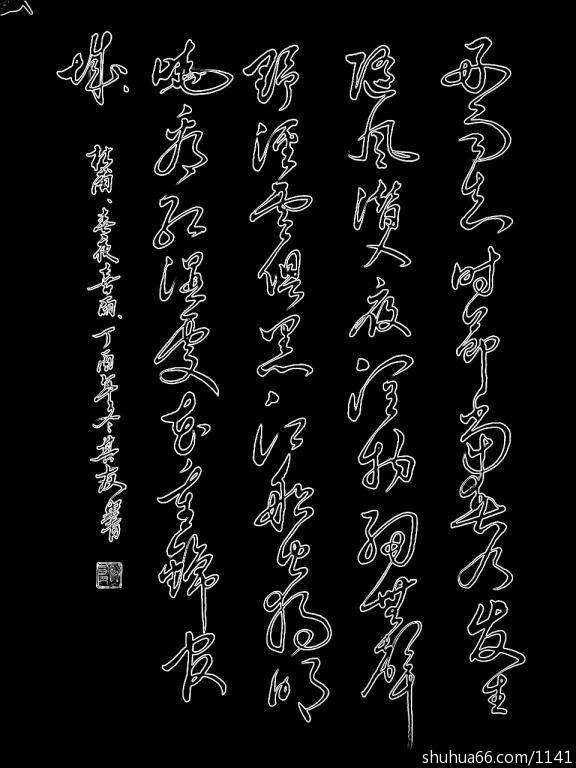 好雨知时節當春乃发生
随风潜入夜润物细無聲
野径雲俱黑江船火独明
晓看红湿處花重錦官
城
杜甫、春夜喜雨、丁酉年冬其友書
shuhua66.com/1141